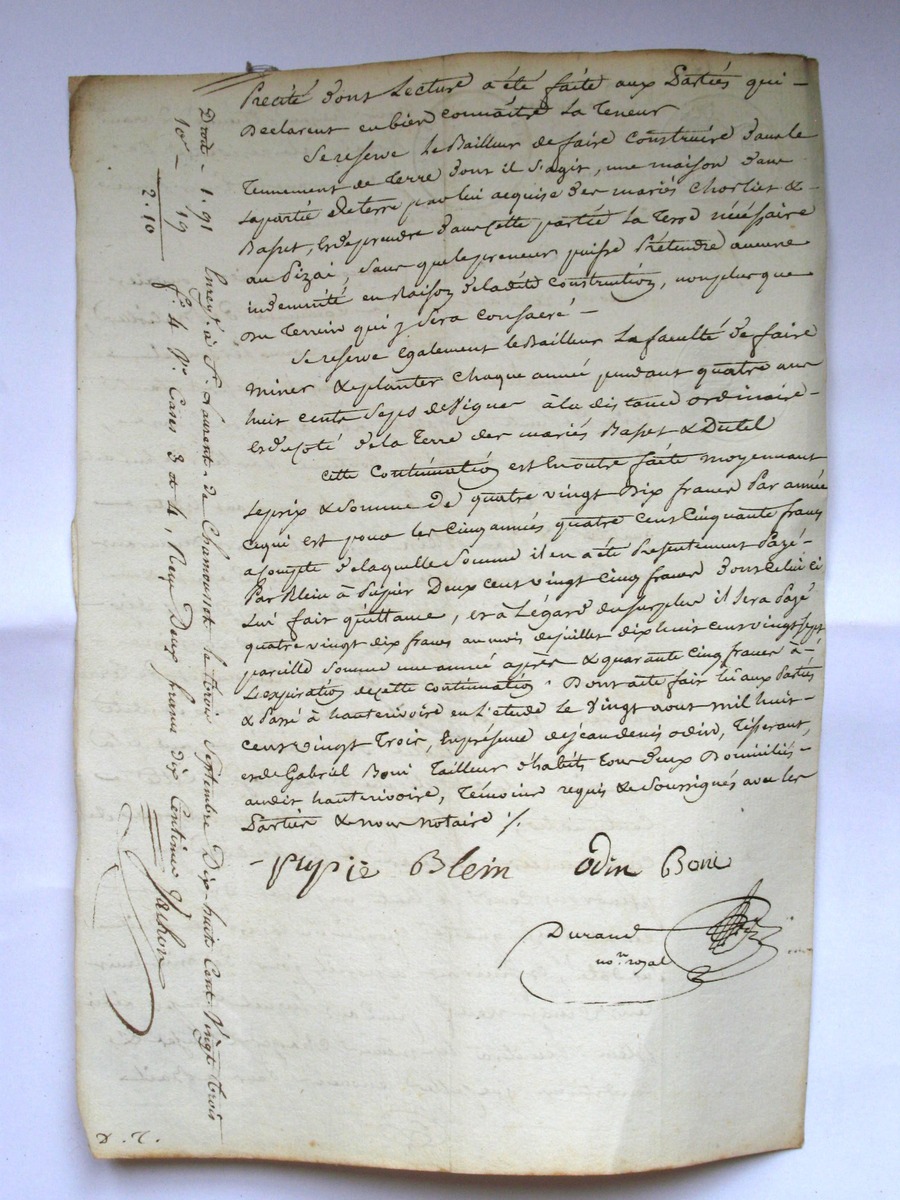 Precité dont Lecture a été faite aux Parties qui –
Declarent en bien connaître La Teneur
Se reserve Le Bailleur de faire Construire dans le
Tennement de Terre dont il s'agit, une maison dans
La partie de terre par lui acquise des mariés Chorliet &
Basset, et de prendre dans cette partie La Terre nécéssaire
au Pizai, sans que le preneur puisse Prétendre aucune
indemnité en Raison de ladite Construction, non plus que
Du Terrein qui y sera consacré –
Se reserve également le Bailleur La faculté de faire
miner & planter chaque année pendant quatre ans
huit cents seps de vignes à la distance ordinaire –
et du côté de la Terre des mariés Basset & Dutel
Cette Continuation est En outre faite moyennant
Le prix & somme de quatre vingt Dix francs Par année
ce qui est pour les cinq années quatre cens Cinquante francs
a compte de laquelle somme il en a été Présentement Payé –
Par Blein à Pupier Deux cens vingt cinq francs dont Celui ci
Lui fait quittance, et à Légard du surplus il sera Payé
quatre vingt dix francs au mois de juillet dix huit cens vingt sept,
pareille somme une année après & quarante cinq francs à –
L'expiration de cette continuation. Dont acte fait lu aux Parties
& Passé à hauterivoire en l'étude le vingt aout mil huit –
cens vingt Trois, En présence de jean denis odin, Tisserant,
et de Gabriel Boni Tailleur d'habits tous deux Domiciliés –
audit hauterivoire, Témoins requis & soussignés avec les
Parties & nous notaire ./.
– pupié Blein Odin Boni
Durand
no.re royal
Droits - 1. 91
10e – 19
2. 10
Enreg. à St. Laurent-de Chamousset le trois Septembre Dix-huit Cent-Vingt trois
f.o 4 V.o Cases 3 et 4, Reçu Deux francs dix Centimes